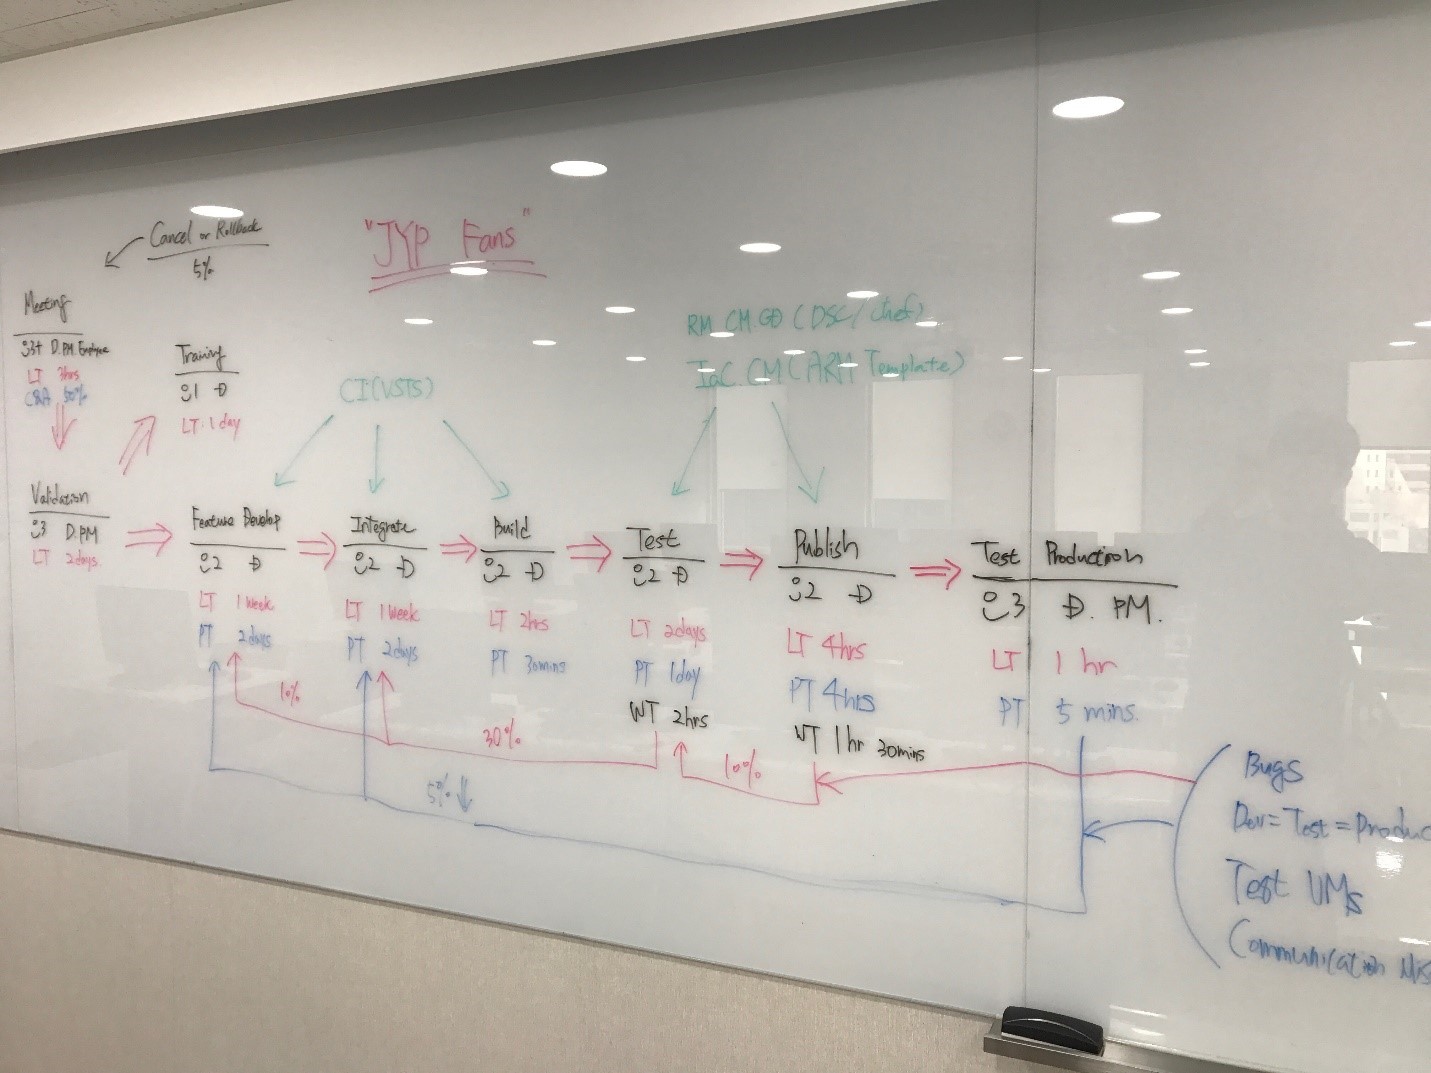 Cancel or Rollback
5%
"JYP Fans"
Meeting
3+ D.PM.Employee
LT 3hrs
C&A 50%
Training
1 D
LT. 1 day
CI(VSTS)
RM CM GD (DSC/chef)
IaC. CM (ARM Template)
Validation
3 D.PM
LT 2days
Feature Develop
2 D
LT 1 week
PT 2days
Integrate
2 D
LT 1 week
PT 2days
Build
2 D
LT 2hrs
PT 30mins
Test
2 D
LT 2days
PT 1day
WT 2hrs
Publish
2 D
LT 4hrs
PT 4hrs
WT 1hr 30mins
Test Production
3 D. PM.
LT 1 hr
PT 5 mins.
10%
30%
10%
5%
Bugs
Dev=Test=Produc
Test VMs
Communication Mis